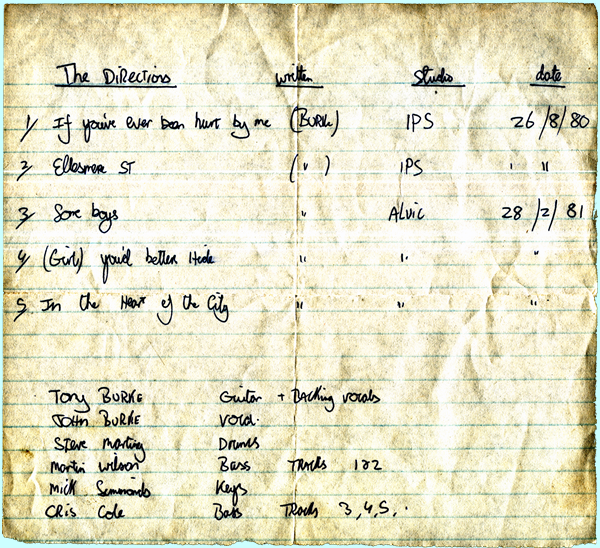 The Directions written Studio date
1/ If you've ever been hurt by me (BURKE) IPS 26/8/80
2/ Ellesmere ST (") IPS " "
3/ Some boys " ALVIC 28/2/81
4/ (Girl) you'd better Hide " " "
5/ In the Heart of the City " " "
Tony BURKE Guitar + BAcking vocals
JOHN BURKE vocal.
Steve Martiny Drums
Martin Wilson Bass TRACKS 1&2
Mick Simmonds Keys
CRis Cole Bass Tracks 3,4,5,.